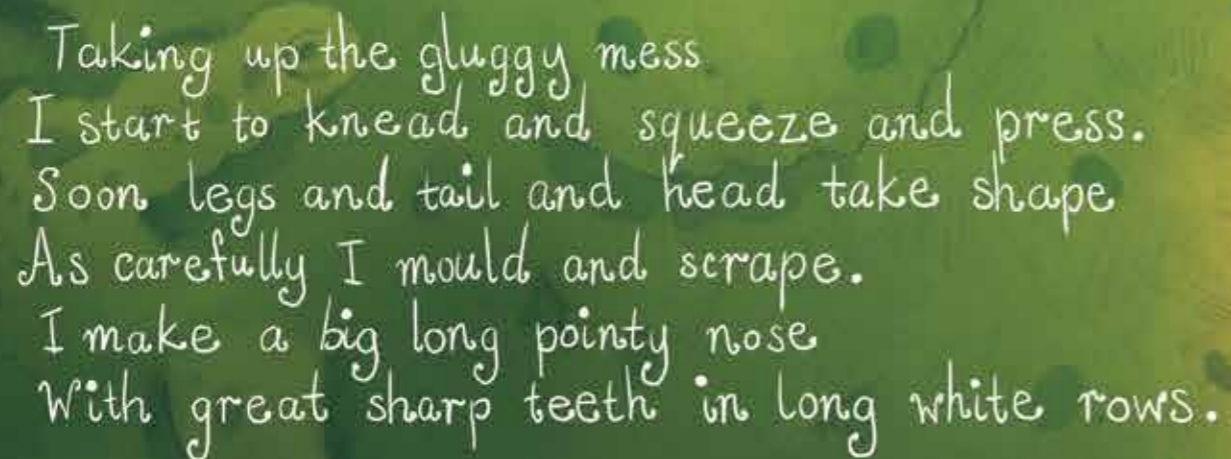 Taking up the gluggy mess
I start to knead and squeeze and press.
Soon legs and tail and head take shape
As carefully I mould and scrape.
I make a big long pointy nose
With great sharp teeth in long white rows.